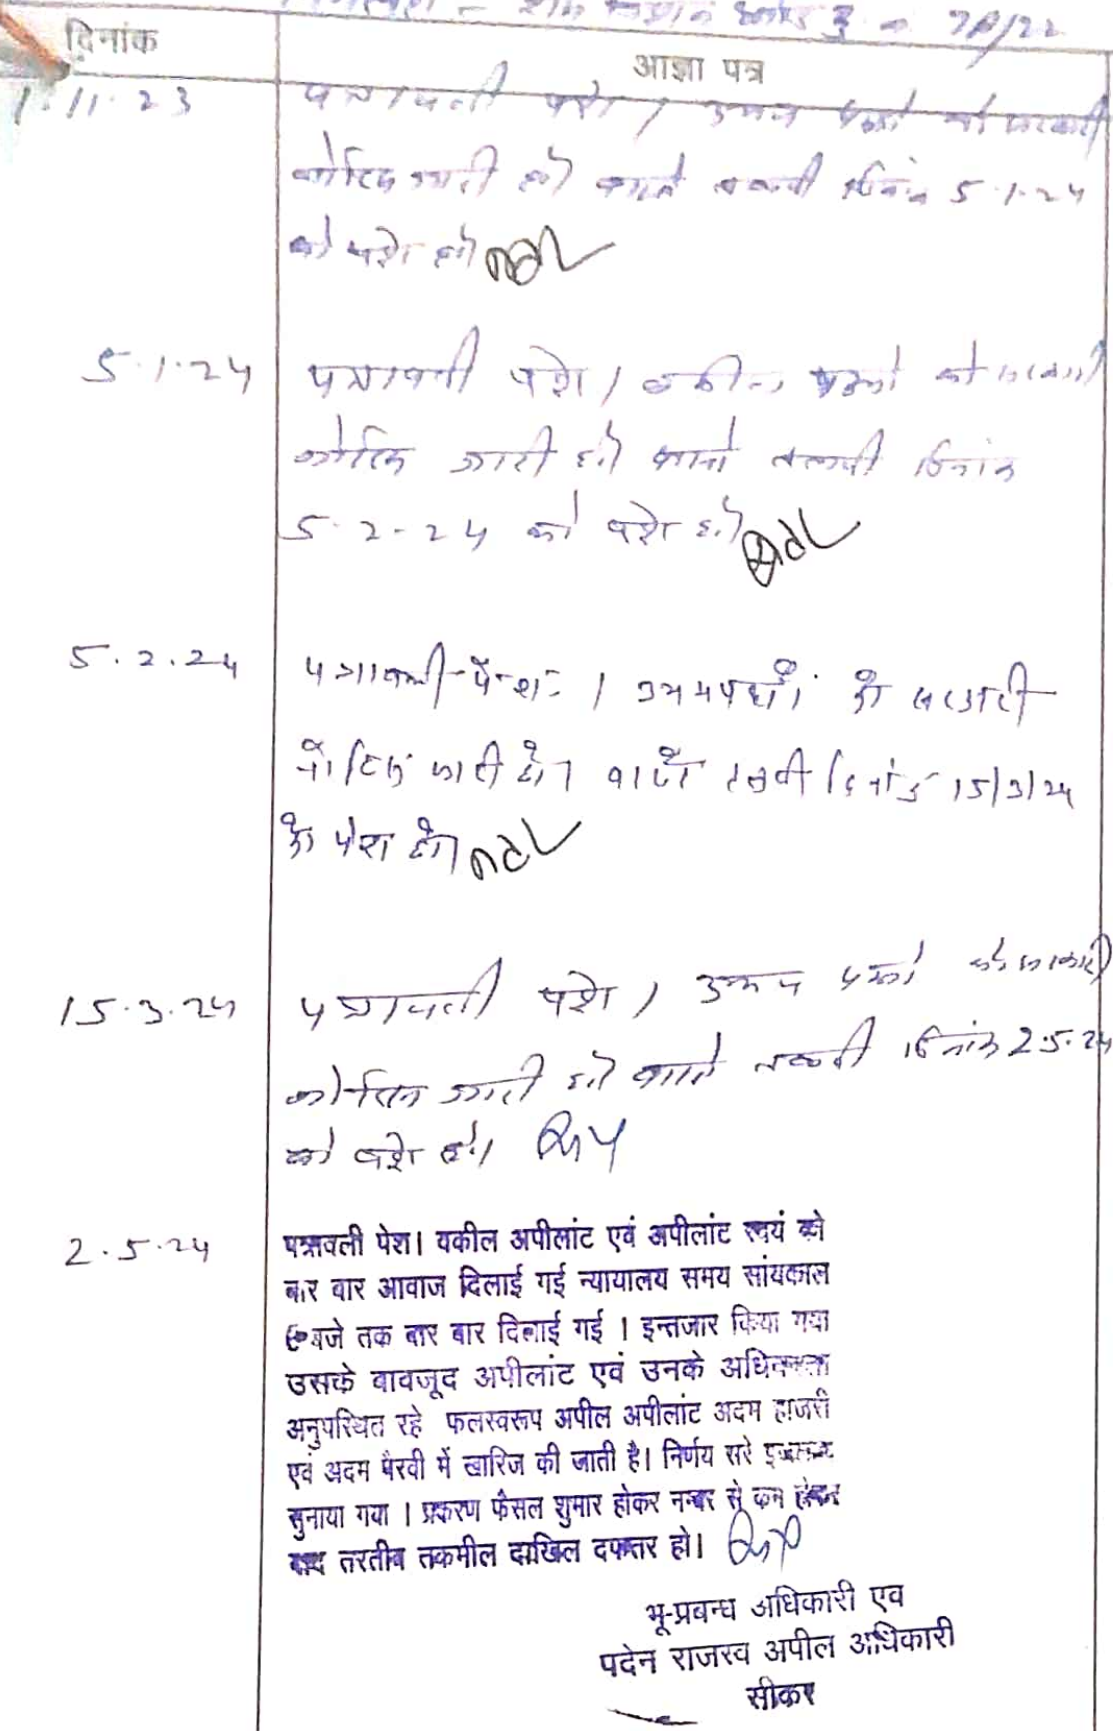 78/22
दिनांक
आज्ञा पत्र
1.11.23
पत्रावली पेश। उभय पक्षो को सरकारी
नोटिस जारी हो वास्ते तलबी दिनांक 5.1.24
को पेश हो
5.1.24
पत्रावली पेश। पक्षो को सरकारी
नोटिस जारी हो वास्ते तलबी दिनांक
5-2-24 को पेश हो
5.2.24
पत्रावली पेश। उभयपक्षों को सरकारी
नोटिस जारी हो। वास्ते तलबी दिनांक 15/3/24
को पेश हो।
15.3.24
पत्रावली पेश। उभय पक्षो को सरकारी
नोटिस जारी हो वास्ते तलबी दिनांक 2.5.24
को पेश हो।
2.5.24
पत्रावली पेश। वकील अपीलांट एवं अपीलांट स्वयं को
बार बार आवाज दिलाई गई न्यायालय समय सांयकाल
बजे तक बार बार दिलाई गई । इन्तजार किया गया
उसके बावजूद अपीलांट एवं उनके अधिवक्ता
अनुपस्थित रहे फलस्वरूप अपील अपीलांट अदम हाजरी
एवं अदम पैरवी में खारिज की जाती है। निर्णय सरे इजलास
सुनाया गया । प्रकरण फैसल शुमार होकर नम्बर से कम होकर
बाद तरतीब तकमील दाखिल दफ्तर हो।
भू-प्रबन्ध अधिकारी एव
पदेन राजस्व अपील अधिकारी
सीकर